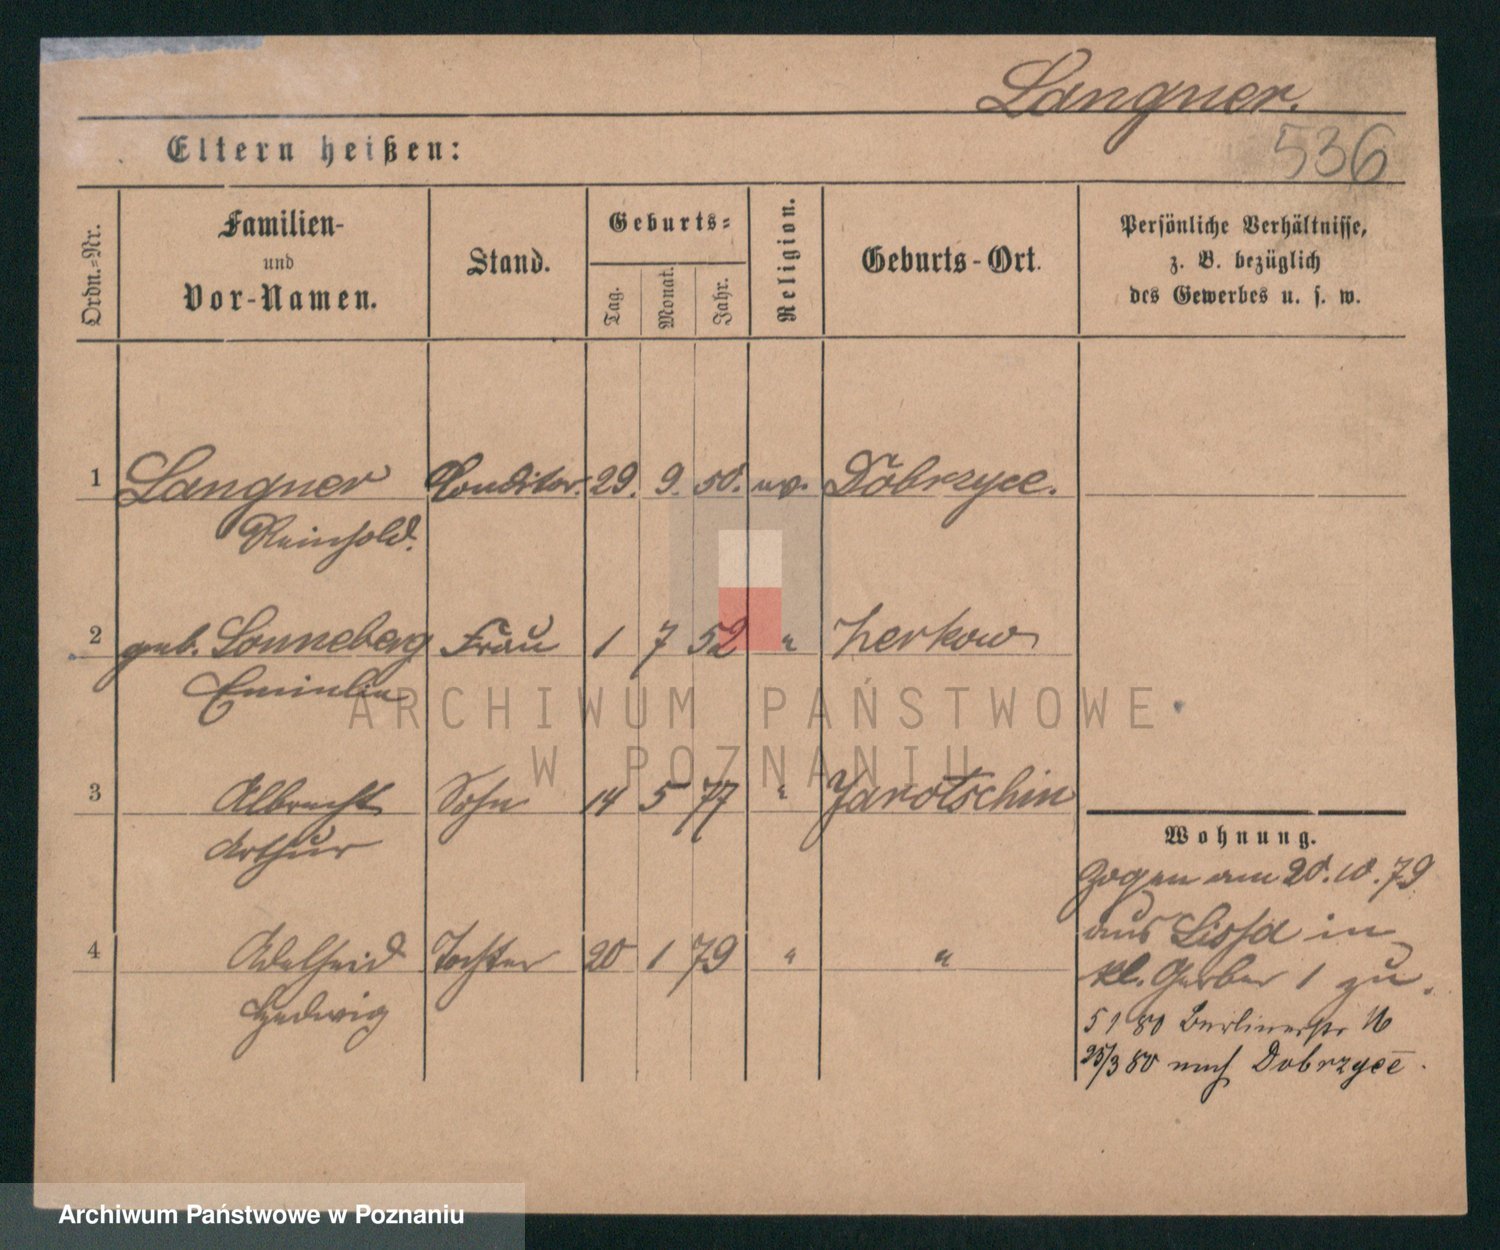 Langner.
536
Eltern heißen:
Ordn.-Nr.
Familien-
und
Vor-Namen.
Stand.
Geburts-
Tag.
Monat.
Jahr.
Religion.
Geburts-Ort.
Persönliche Verhältnisse,
z. B. bezüglich
des Gewerbes u. s. w.
1 Langner Conditor. 29. 9. 50. ev. Dobrzyce.
Reinhold.
2 geb. Sonneberg Frau 1 7 52 " Zerkow
3 Albrecht Sohn 14 5 77 " Jarotschin
Arthur
4 Adelheid Tochter 20 1 79 " "
Hedwig
Wohnung.
Zogen am 20. 10. 79
aus Lissa in
kl. Gerber 1 zu.
5 1 80 Berlinerstr 16
25/3 80 nach Dobrzyce.
ARCHIWUM PAŃSTWOWE
W POZNANIU
Archiwum Państwowe w Poznaniu